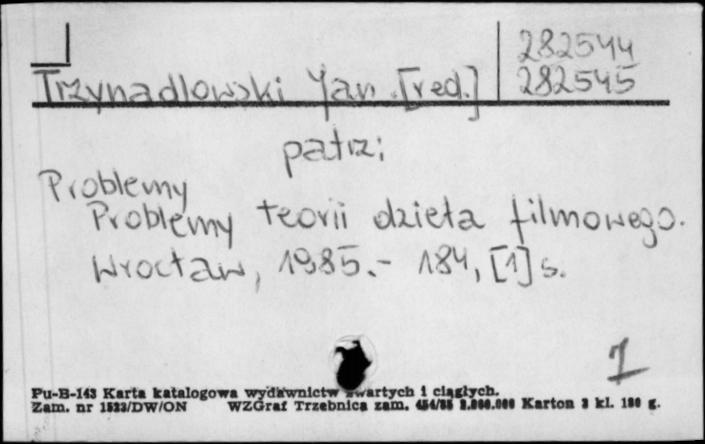 282544
Trzynadlowski Jan [red.] 282545
patrz:
Problemy
Problemy teorii dzieła filmowego.
Wrocław, 1985.- 184, [1] s.
1
Pu-B-143 Karta katalogowa wydawnictw zwartych i ciągłych.
Zam. nr 1523/DW/ON WZGraf Trzebnica zam. 454/85 Karton 3 kl. 180 g.